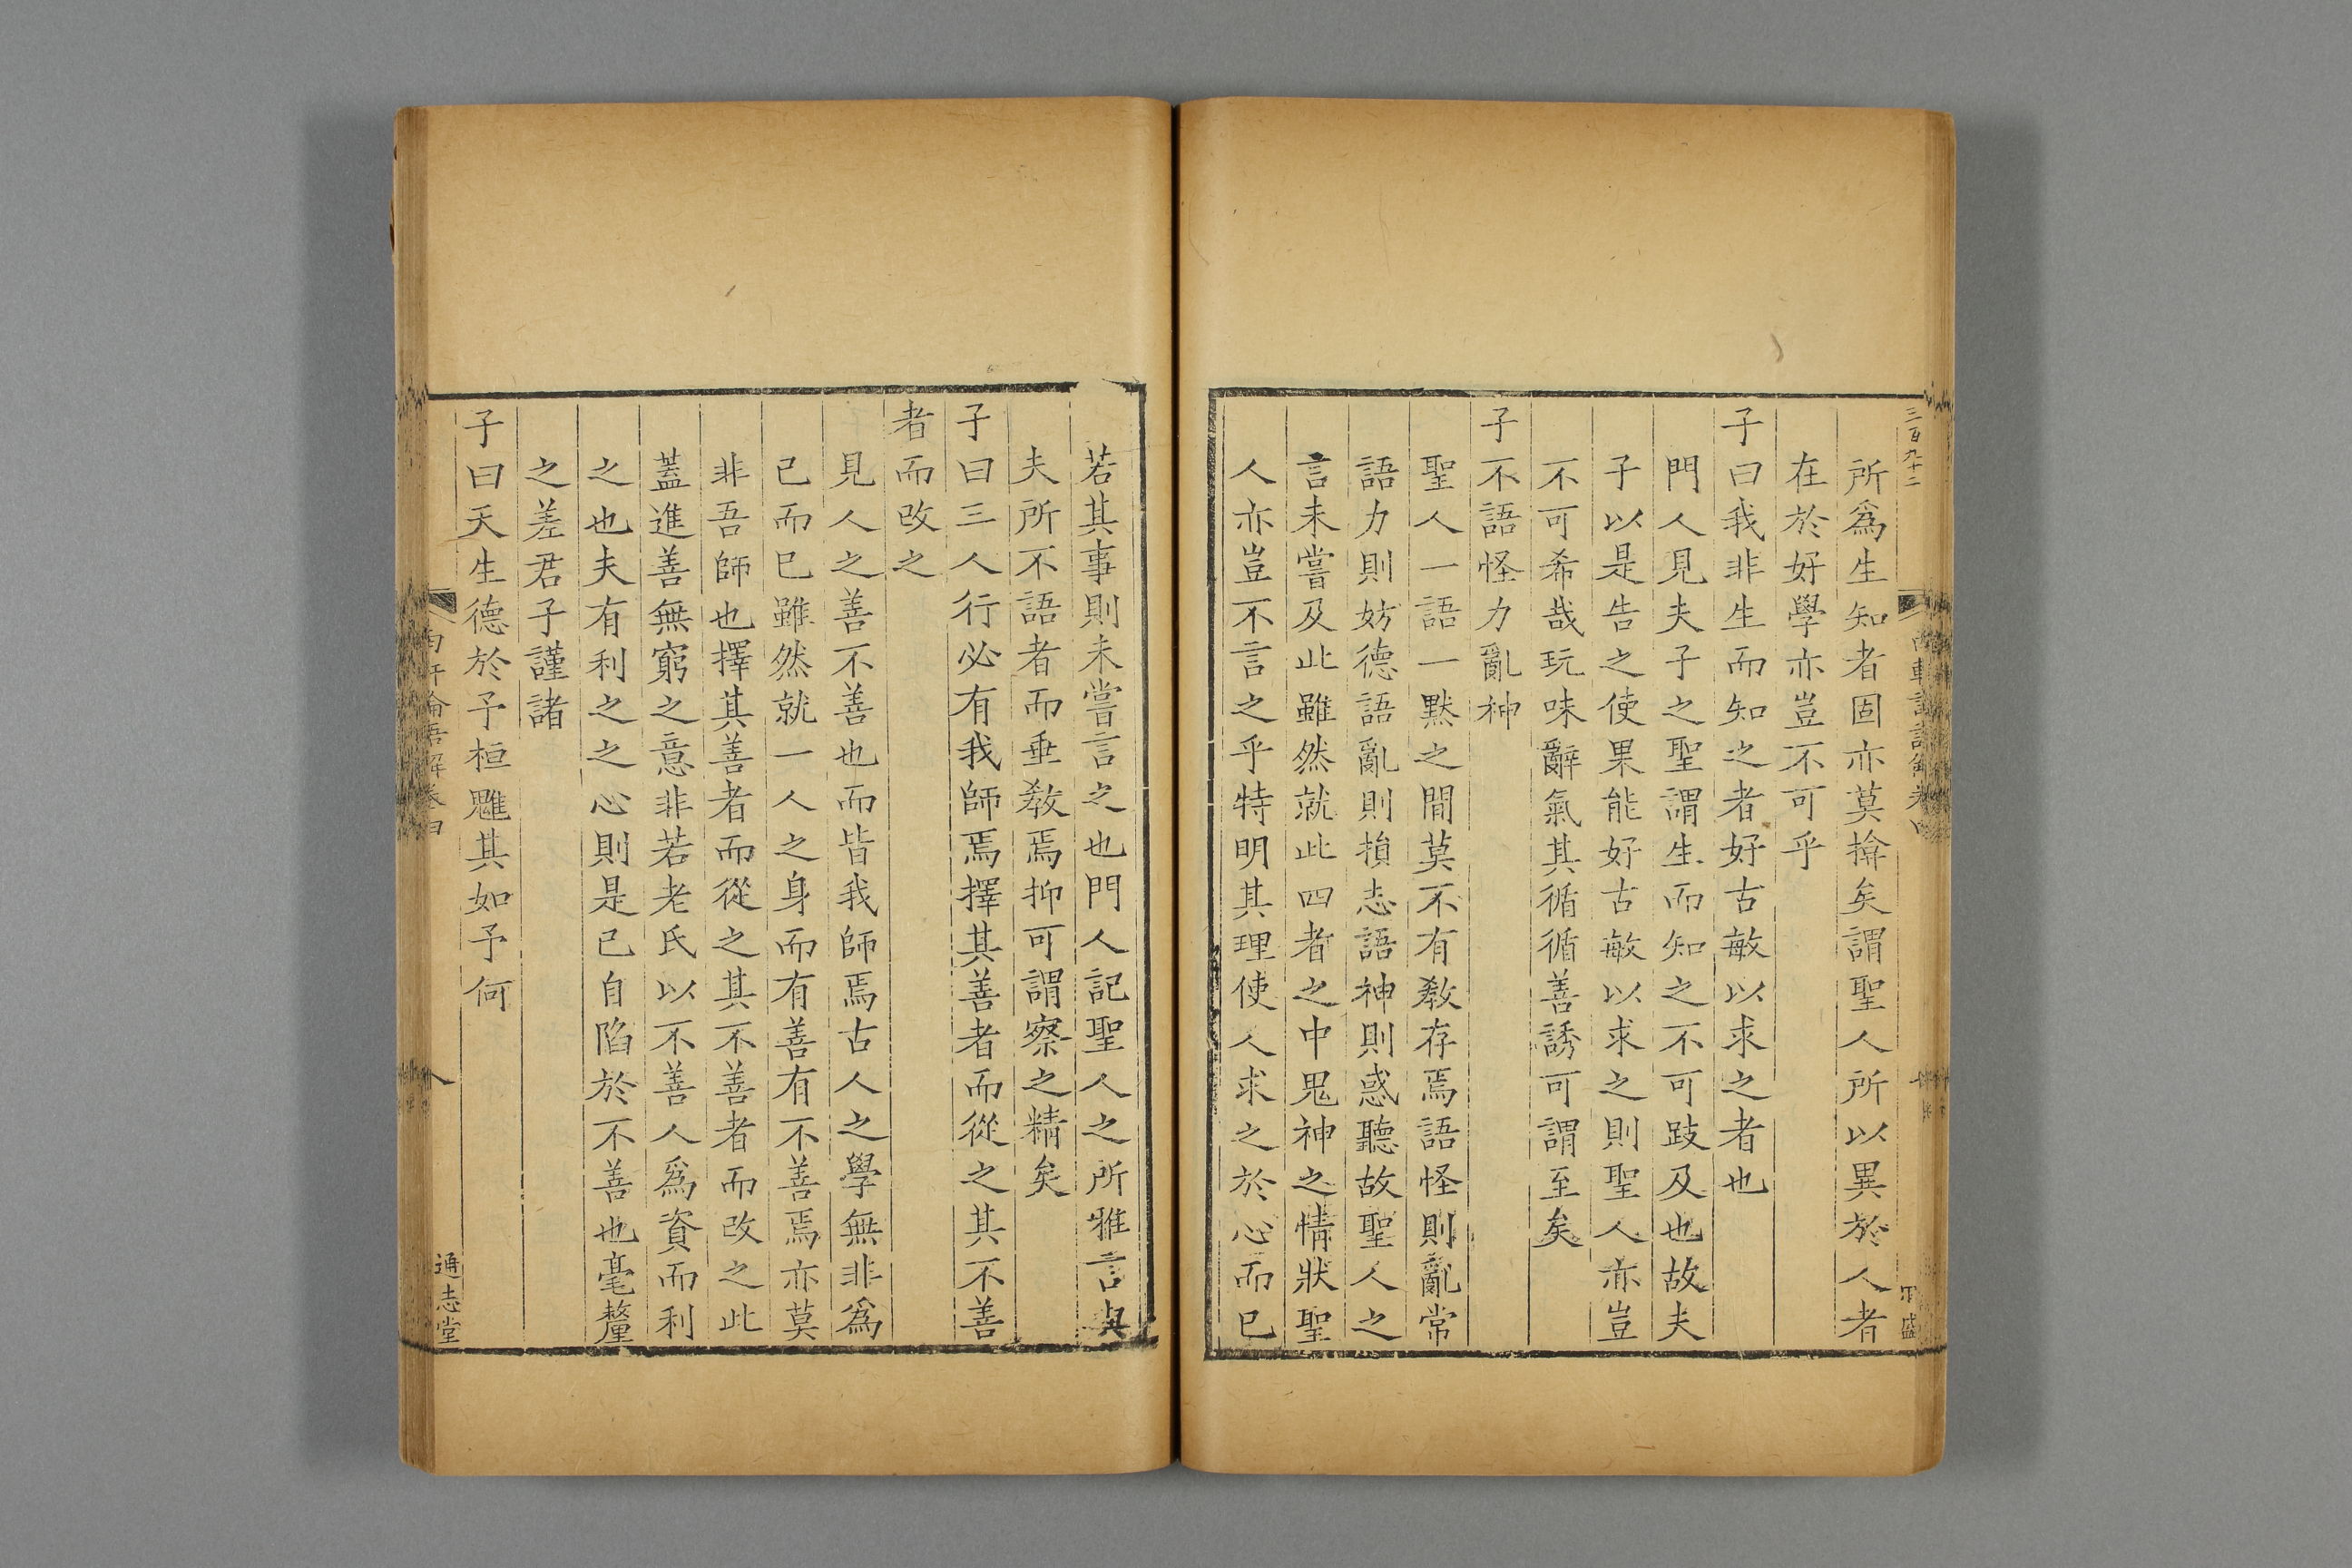 三百九十二
所爲生知者固亦莫揜矣謂聖人所以異於人者
在於好學亦豈不可乎
子曰我非生而知之者好古敏以求之者也
門人見夫子之聖謂生而知之不可跂及也故夫
子以是告之使果能好古敏以求之則聖人亦豈
不可希哉玩味辭氣其循循善誘可謂至矣
子不語怪力亂神
聖人一語一默之間莫不有教存焉語怪則亂常
語力則妨德語亂則損志語神則惑聽故聖人之
言未嘗及此雖然就此四者之中鬼神之情狀聖
人亦豈不言之乎特明其理使人求之於心而已
若其事則未嘗言之也門人記聖人之所雅言與
夫所不語者而垂教焉抑可謂察之精矣
子曰三人行必有我師焉擇其善者而從之其不善
者而改之
見人之善不善也而皆我師焉古人之學無非爲
己而已雖然就一人之身而有善有不善焉亦莫
非吾師也擇其善者而從之其不善者而改之此
蓋進善無窮之意非若老氏以不善人爲資而利
之也夫有利之之心則是已自陷於不善也毫釐
之差君子謹諸
子曰天生德於予桓魋其如予何
南軒論語解卷四
八
通志堂